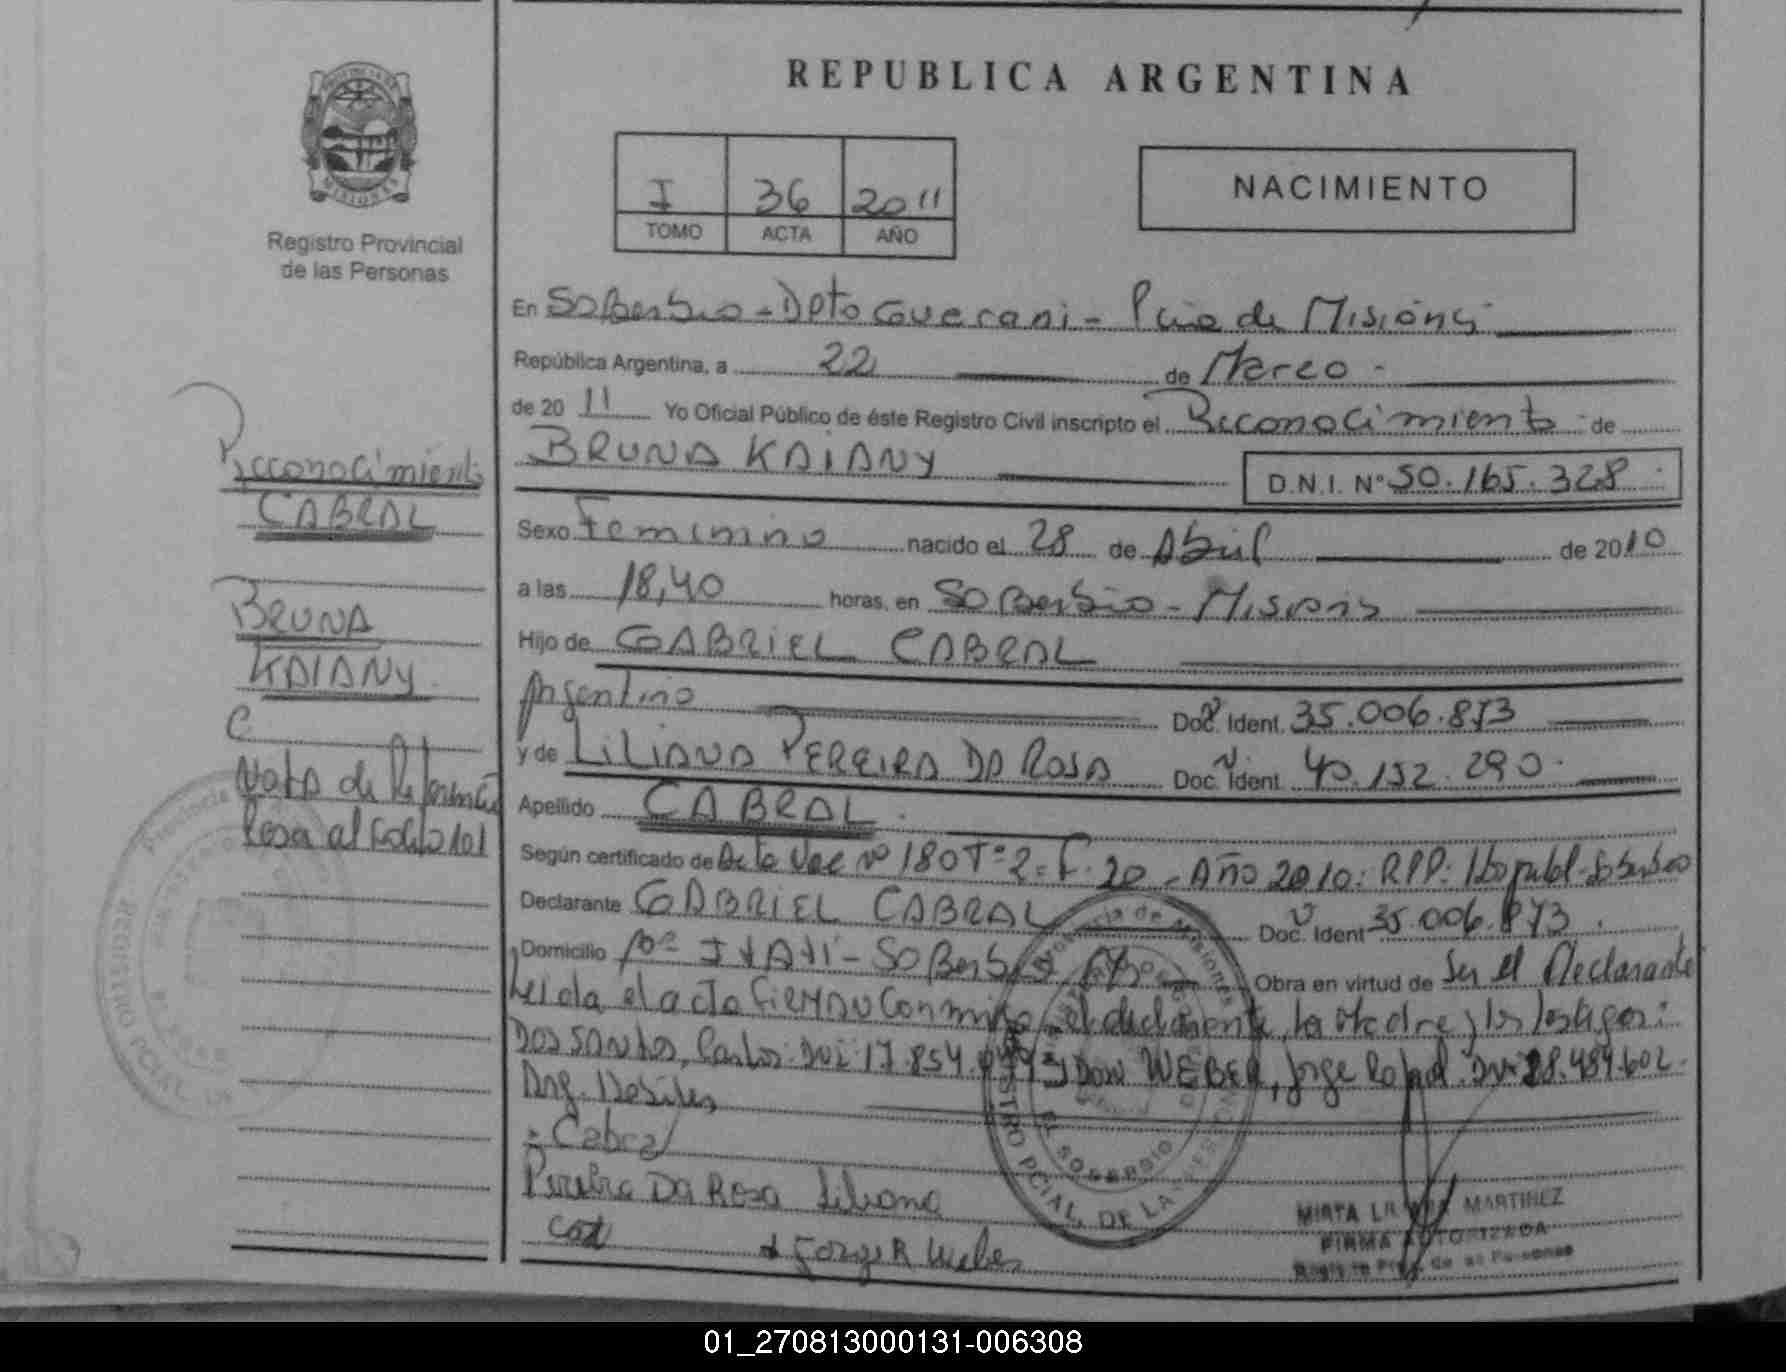 REPUBLICA ARGENTINA
I 36 2011
TOMO ACTA AÑO
NACIMIENTO
MISIONES
Registro Provincial
de las Personas
Reconocimiento
CABRAL
BRUNA
KAIANY
C
Nota de Referencia
Pasa al Folio 101
En Soberbio - Dpto Guarani - Pcia de Misiones
República Argentina, a 22 de Marzo -
de 2011 Yo Oficial Público de éste Registro Civil inscripto el Reconocimiento de
BRUNA KAIANY D.N.I. Nº 50.165.328
Sexo Femenino nacido el 28 de Abril de 2010
a las 18,40 horas, en Soberbio - Misiones
Hijo de GABRIEL CABRAL
Argentino Doc. Ident. 35.006.873
y de LILIANA PEREIRA DA ROSA Doc. Ident. 40.152.290
Apellido CABRAL
Según certificado de Acta Nac nº 180 Tº 2 - F. 20 - Año 2010: RPP: Soberbio
Declarante GABRIEL CABRAL Doc. Ident 35.006.873
Domicilio Bº Itati - Soberbio Obra en virtud de Ser el Declarante
Leida el acta Firman Conmigo el declarante, la Madre y los testigos:
DOS SANTOS, Carlos DNI 17.854. y Don WEBER, Jorge Rafael. DNI 28.484.602
Arg. Habiles
Cabral
Pereira Da Rosa Liliana
Jorge R Weber
Provincia de Misiones
REGISTRO PCIAL. DE LA
EL SOBERBIO
MIRTA MARTINEZ
FIRMA AUTORIZADA
Provincia
REGISTRO PCIAL
01_270813000131-006308